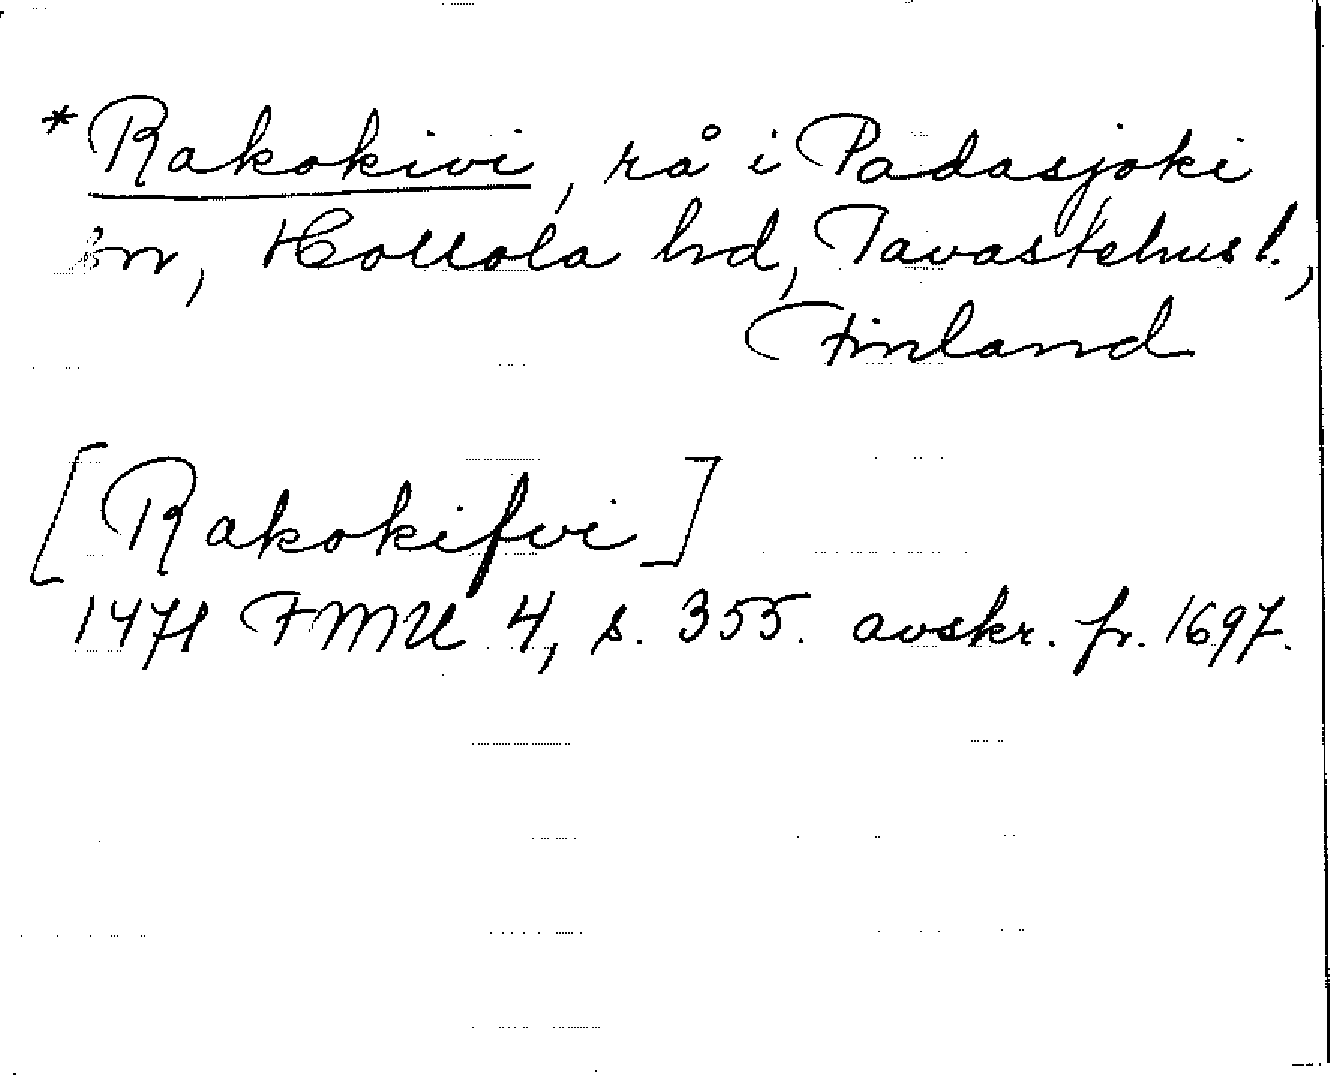 *Rakokivi, rå i Padasjoki
sn, Hollola hd, Tavastehus l.,
Finland
[Rakokifvi]
1471 FMU 4, s. 355. avskr. fr. 1697.